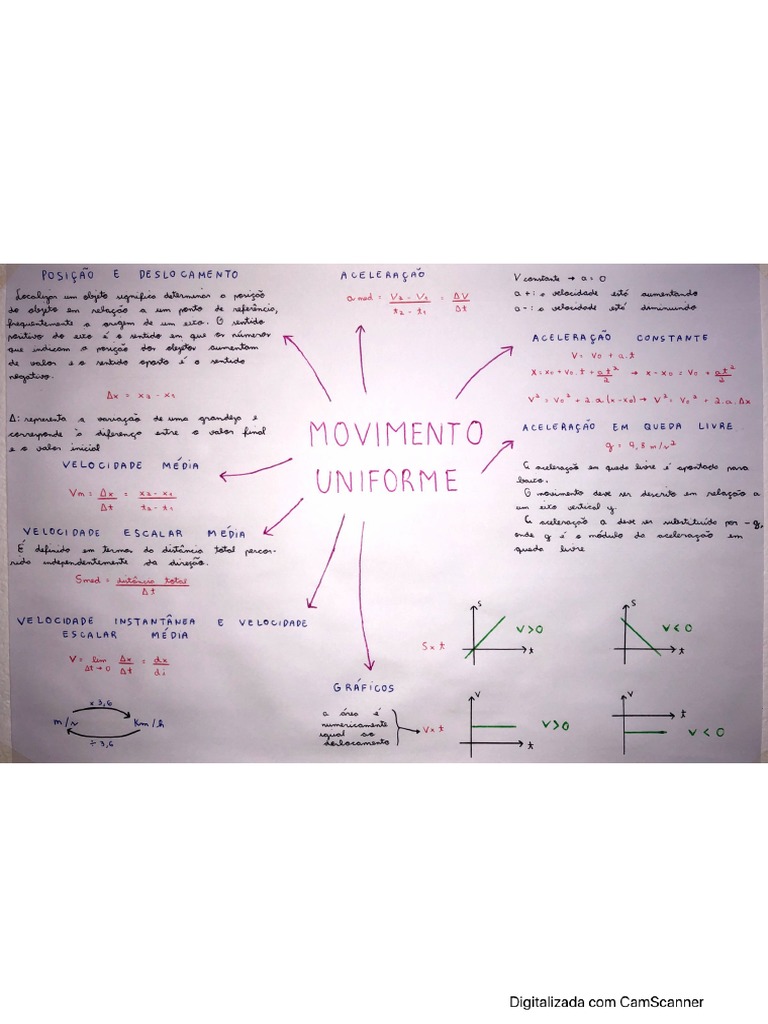 POSIÇÃO E DESLOCAMENTO
Localizar um objeto significa determinar a posição
do objeto em relação a um ponto de referência,
frequentemente a origem de um eixo. O sentido
positivo do eixo é o sentido em que os números
que indicam a posição dos objetos aumentam
de valor e o sentido oposto é o sentido
negativo.
Δx = x2 - x1
Δ: representa a variação de uma grandeza e
corresponde à diferença entre o valor final
e o valor inicial
VELOCIDADE MÉDIA
Vm = Δx/Δt = x2 - x1/t2 - t1
VELOCIDADE ESCALAR MÉDIA
É definida em termos da distância total percor-
rida independentemente da direção.
Smed = distância total/Δt
VELOCIDADE INSTANTÂNEA E VELOCIDADE
ESCALAR MÉDIA
V = lim Δt→0 Δx/Δt = dx/di
x 3,6
m/s Km/h
÷ 3,6
ACELERAÇÃO
a med = V2 - V1/t2 - t1 = ΔV/Δt
MOVIMENTO
UNIFORME
GRÁFICOS
a área é
numericamente
igual ao
deslocamento
V x t
S x t
S
V>0
t
S
V<0
t
V
V>0
t
V
t
V<0
V constante → a = 0
a + : a velocidade está aumentando
a - : a velocidade está diminuindo
ACELERAÇÃO CONSTANTE
V = V0 + a.t
X = X0 + V0.t + at²/2 → x - x0 = V0 + at²/2
V² = V0² + 2.a(x-x0) → V² = V0² + 2.a.Δx
ACELERAÇÃO EM QUEDA LIVRE
g = 9,8 m/s²
A aceleração em queda livre é apontada para
baixo.
O movimento deve ser descrito em relação a
um eixo vertical y.
A aceleração a deve ser substituída por -g,
onde g é o módulo da aceleração em
queda livre
Digitalizada com CamScanner